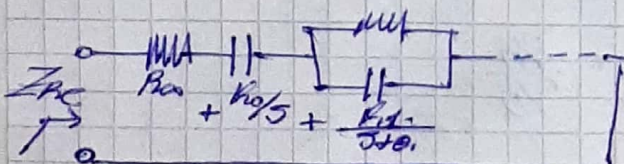 Z_RC R∞ + K₀/S + K₁/(S+σ₁)